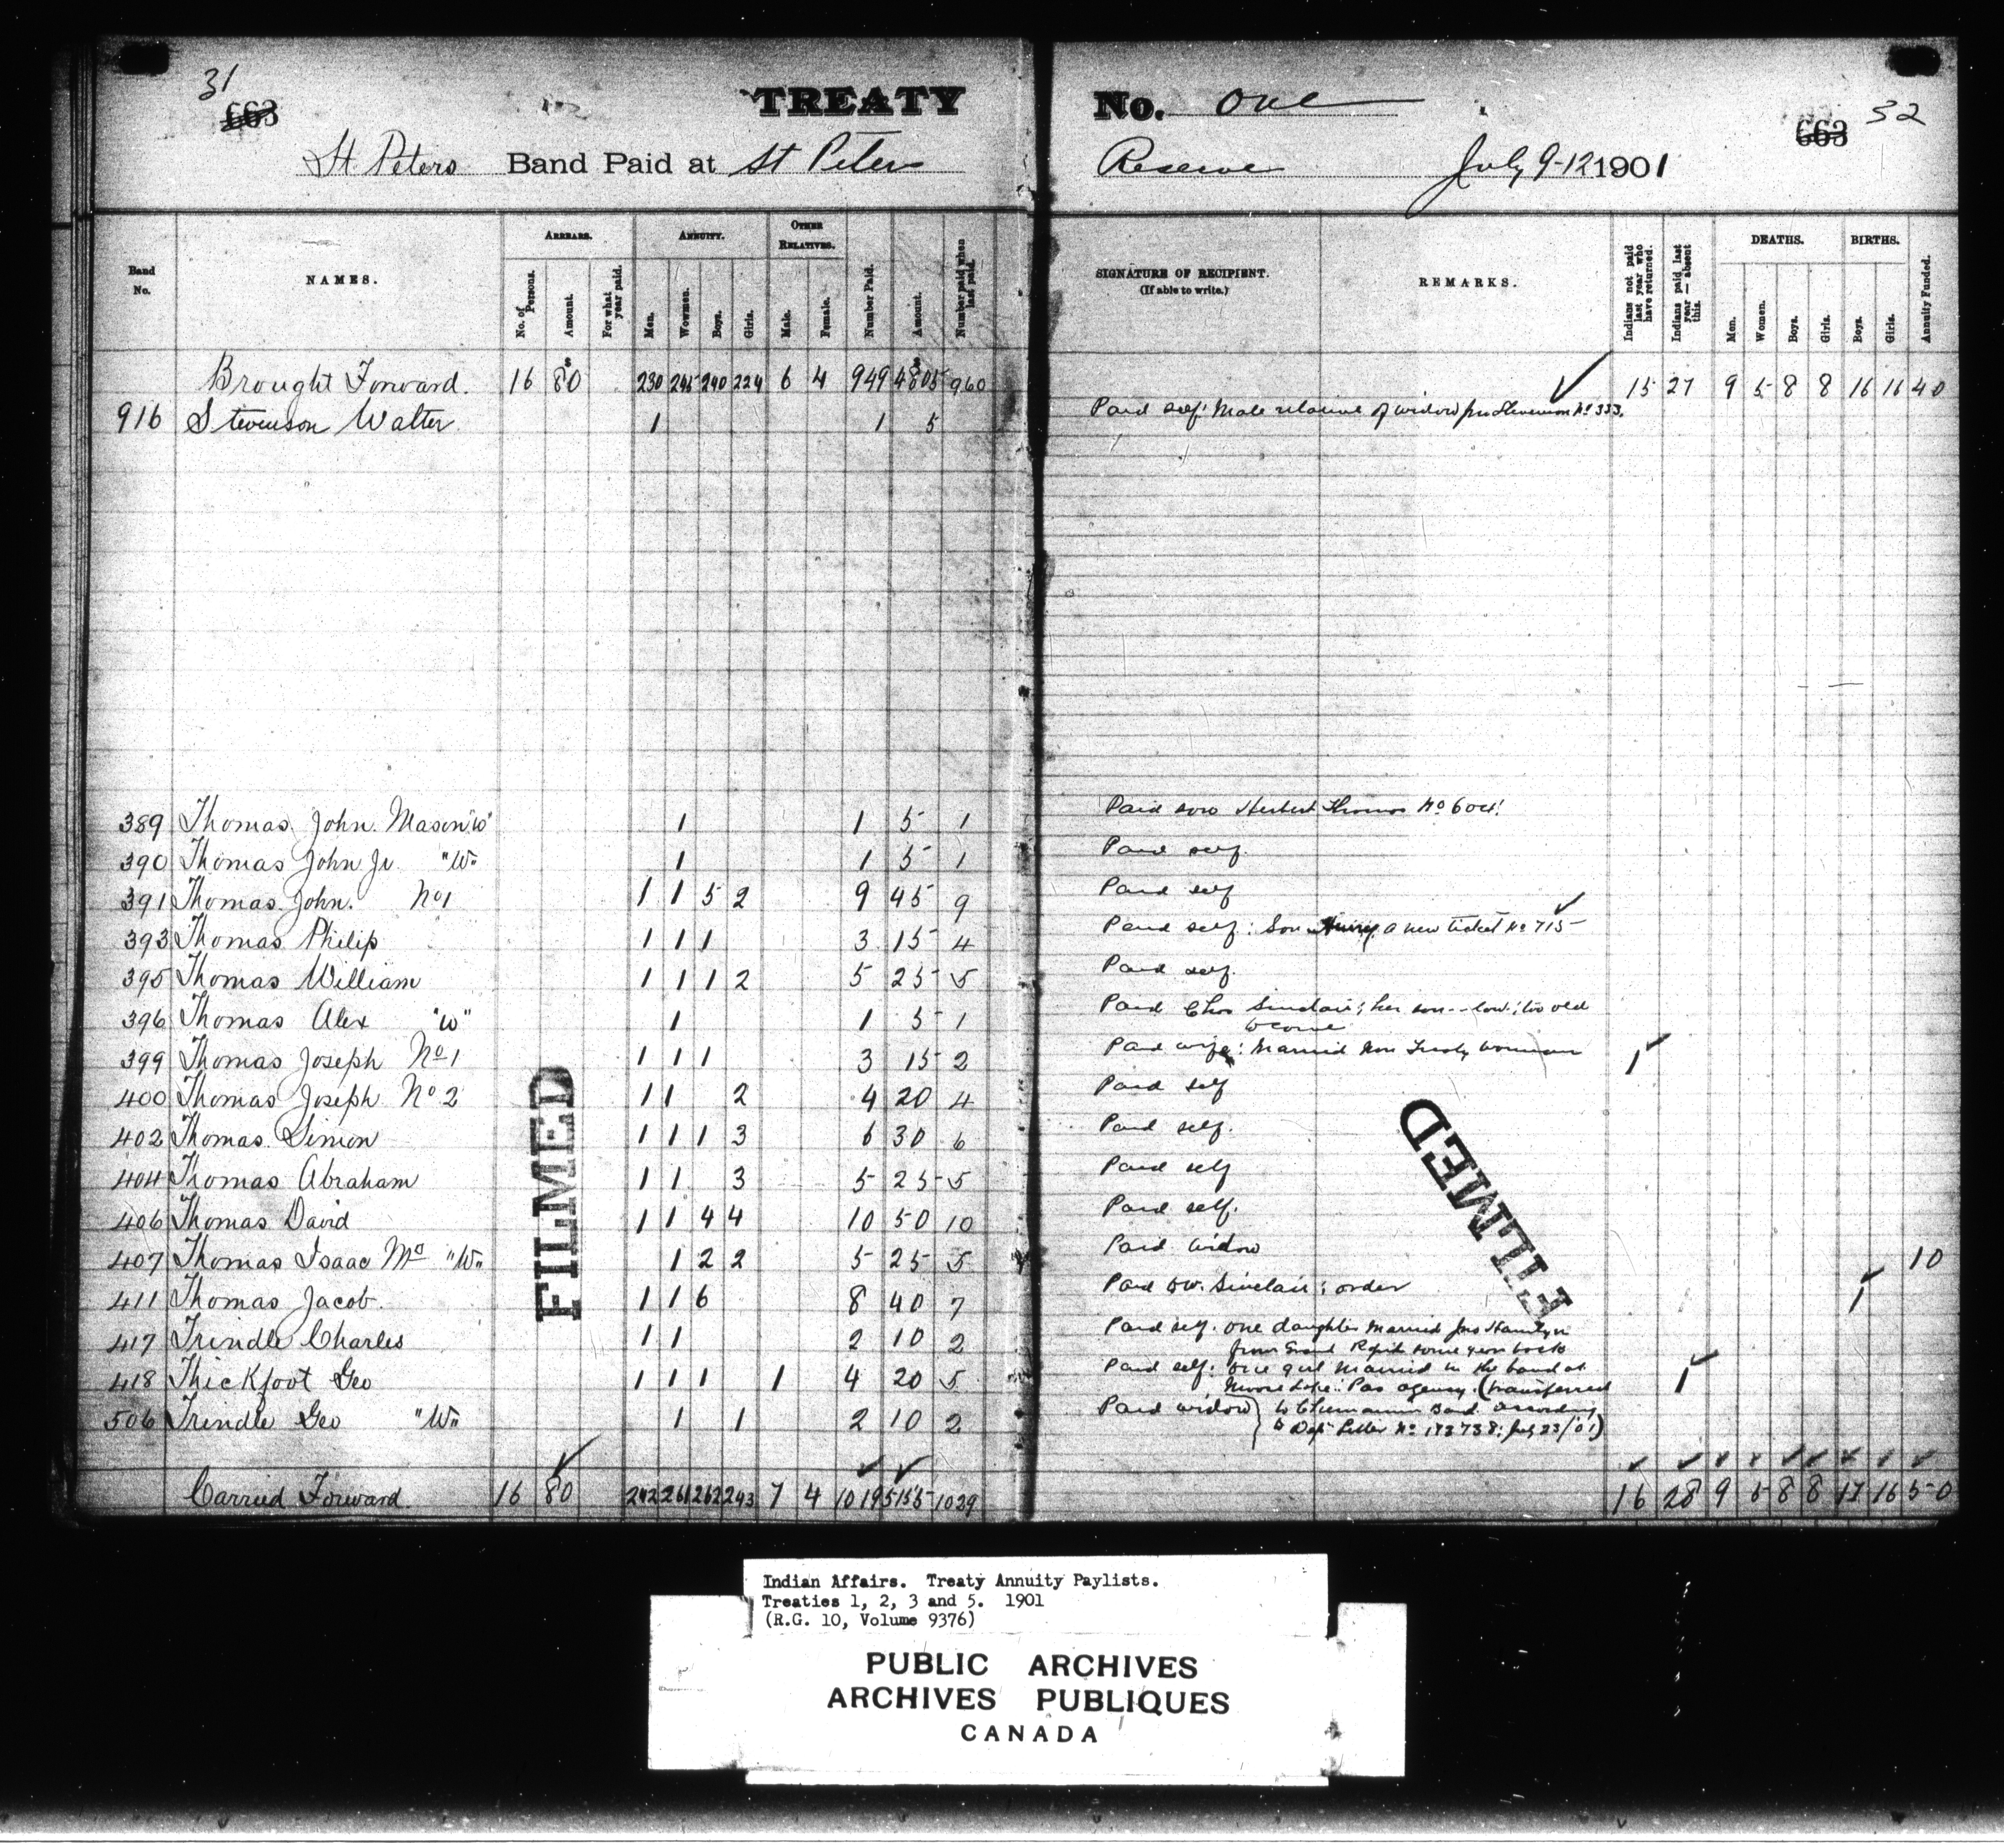 31
663
TREATY No. One
663 32
St Peters Band Paid at St Peters Reserve July 9-12 1901
Band No. NAMES. ARREARS. ANNUITY. OTHER RELATIVES. Number Paid. Amount. Number paid when last paid. SIGNATURE OF RECIPIENT. (If able to write.) REMARKS. Indians not paid last year who have returned. Indians paid last year — absent this. DEATHS. BIRTHS. Annuity Funded.
No. of Persons. Amount. For what year paid. Men. Wowmen. Boys. Girls. Male. Female. Men. Women. Boys. Girls. Boys. Girls.
Brought Forward. 16 $80 230 245 240 224 6 4 949 $4805 960 15 27 9 5 8 8 16 16 40
916 Stevenson Walter 1 1 5 Paid self: Male relative of widow Jno Stevenson No 333.
389 Thomas John. Mason "W" 1 1 5 1 Paid son Herbert Thomas No 604!
390 Thomas John Jr. "W" 1 1 5 1 Paid self.
391 Thomas John. No 1 1 1 5 2 9 45 9 Paid self
393 Thomas Philip 1 1 1 3 15 4 Paid self: Son a new ticket No 715
395 Thomas William 1 1 1 2 5 25 5 Paid self.
396 Thomas Alex "W" 1 1 5 1 Paid Chas Sinclair; her son--law; too old
to come
399 Thomas Joseph No 1 1 1 1 3 15 2 Paid wife: Married Non Treaty woman 1
400 Thomas Joseph No 2 1 1 2 4 20 4 Paid self
402 Thomas Simon 1 1 1 3 6 30 6 Paid self.
404 Thomas Abraham 1 1 3 5 25 5 Paid self
406 Thomas David 1 1 4 4 10 50 10 Paid self.
407 Thomas Isaac "W" 1 2 2 5 25 5 Paid Widow 10
411 Thomas Jacob. 1 1 6 8 40 7 Paid W. Sinclair: order 1
417 Trindle Charles 1 1 2 10 2 Paid self. One daughter married Jno
from Grand Rapids some years back
418 Thickfoot Geo 1 1 1 1 4 20 5 Paid self: One girl married in the band at 1
Moose Lake: Pas agency. (transferred
506 Trindle Geo "W" 1 1 2 10 2 Paid widow } to Chemawin Band according
to Dept Letter No 193738: July 23/01)
Carried Forward. 16 80 242 261 262 243 7 4 1019 5155 1029 16 28 9 5 8 8 17 16 50
FILMED
FILMED
Indian Affairs. Treaty Annuity Paylists.
Treaties 1, 2, 3 and 5. 1901
(R.G. 10, Volume 9376)
PUBLIC ARCHIVES
ARCHIVES PUBLIQUES
CANADA